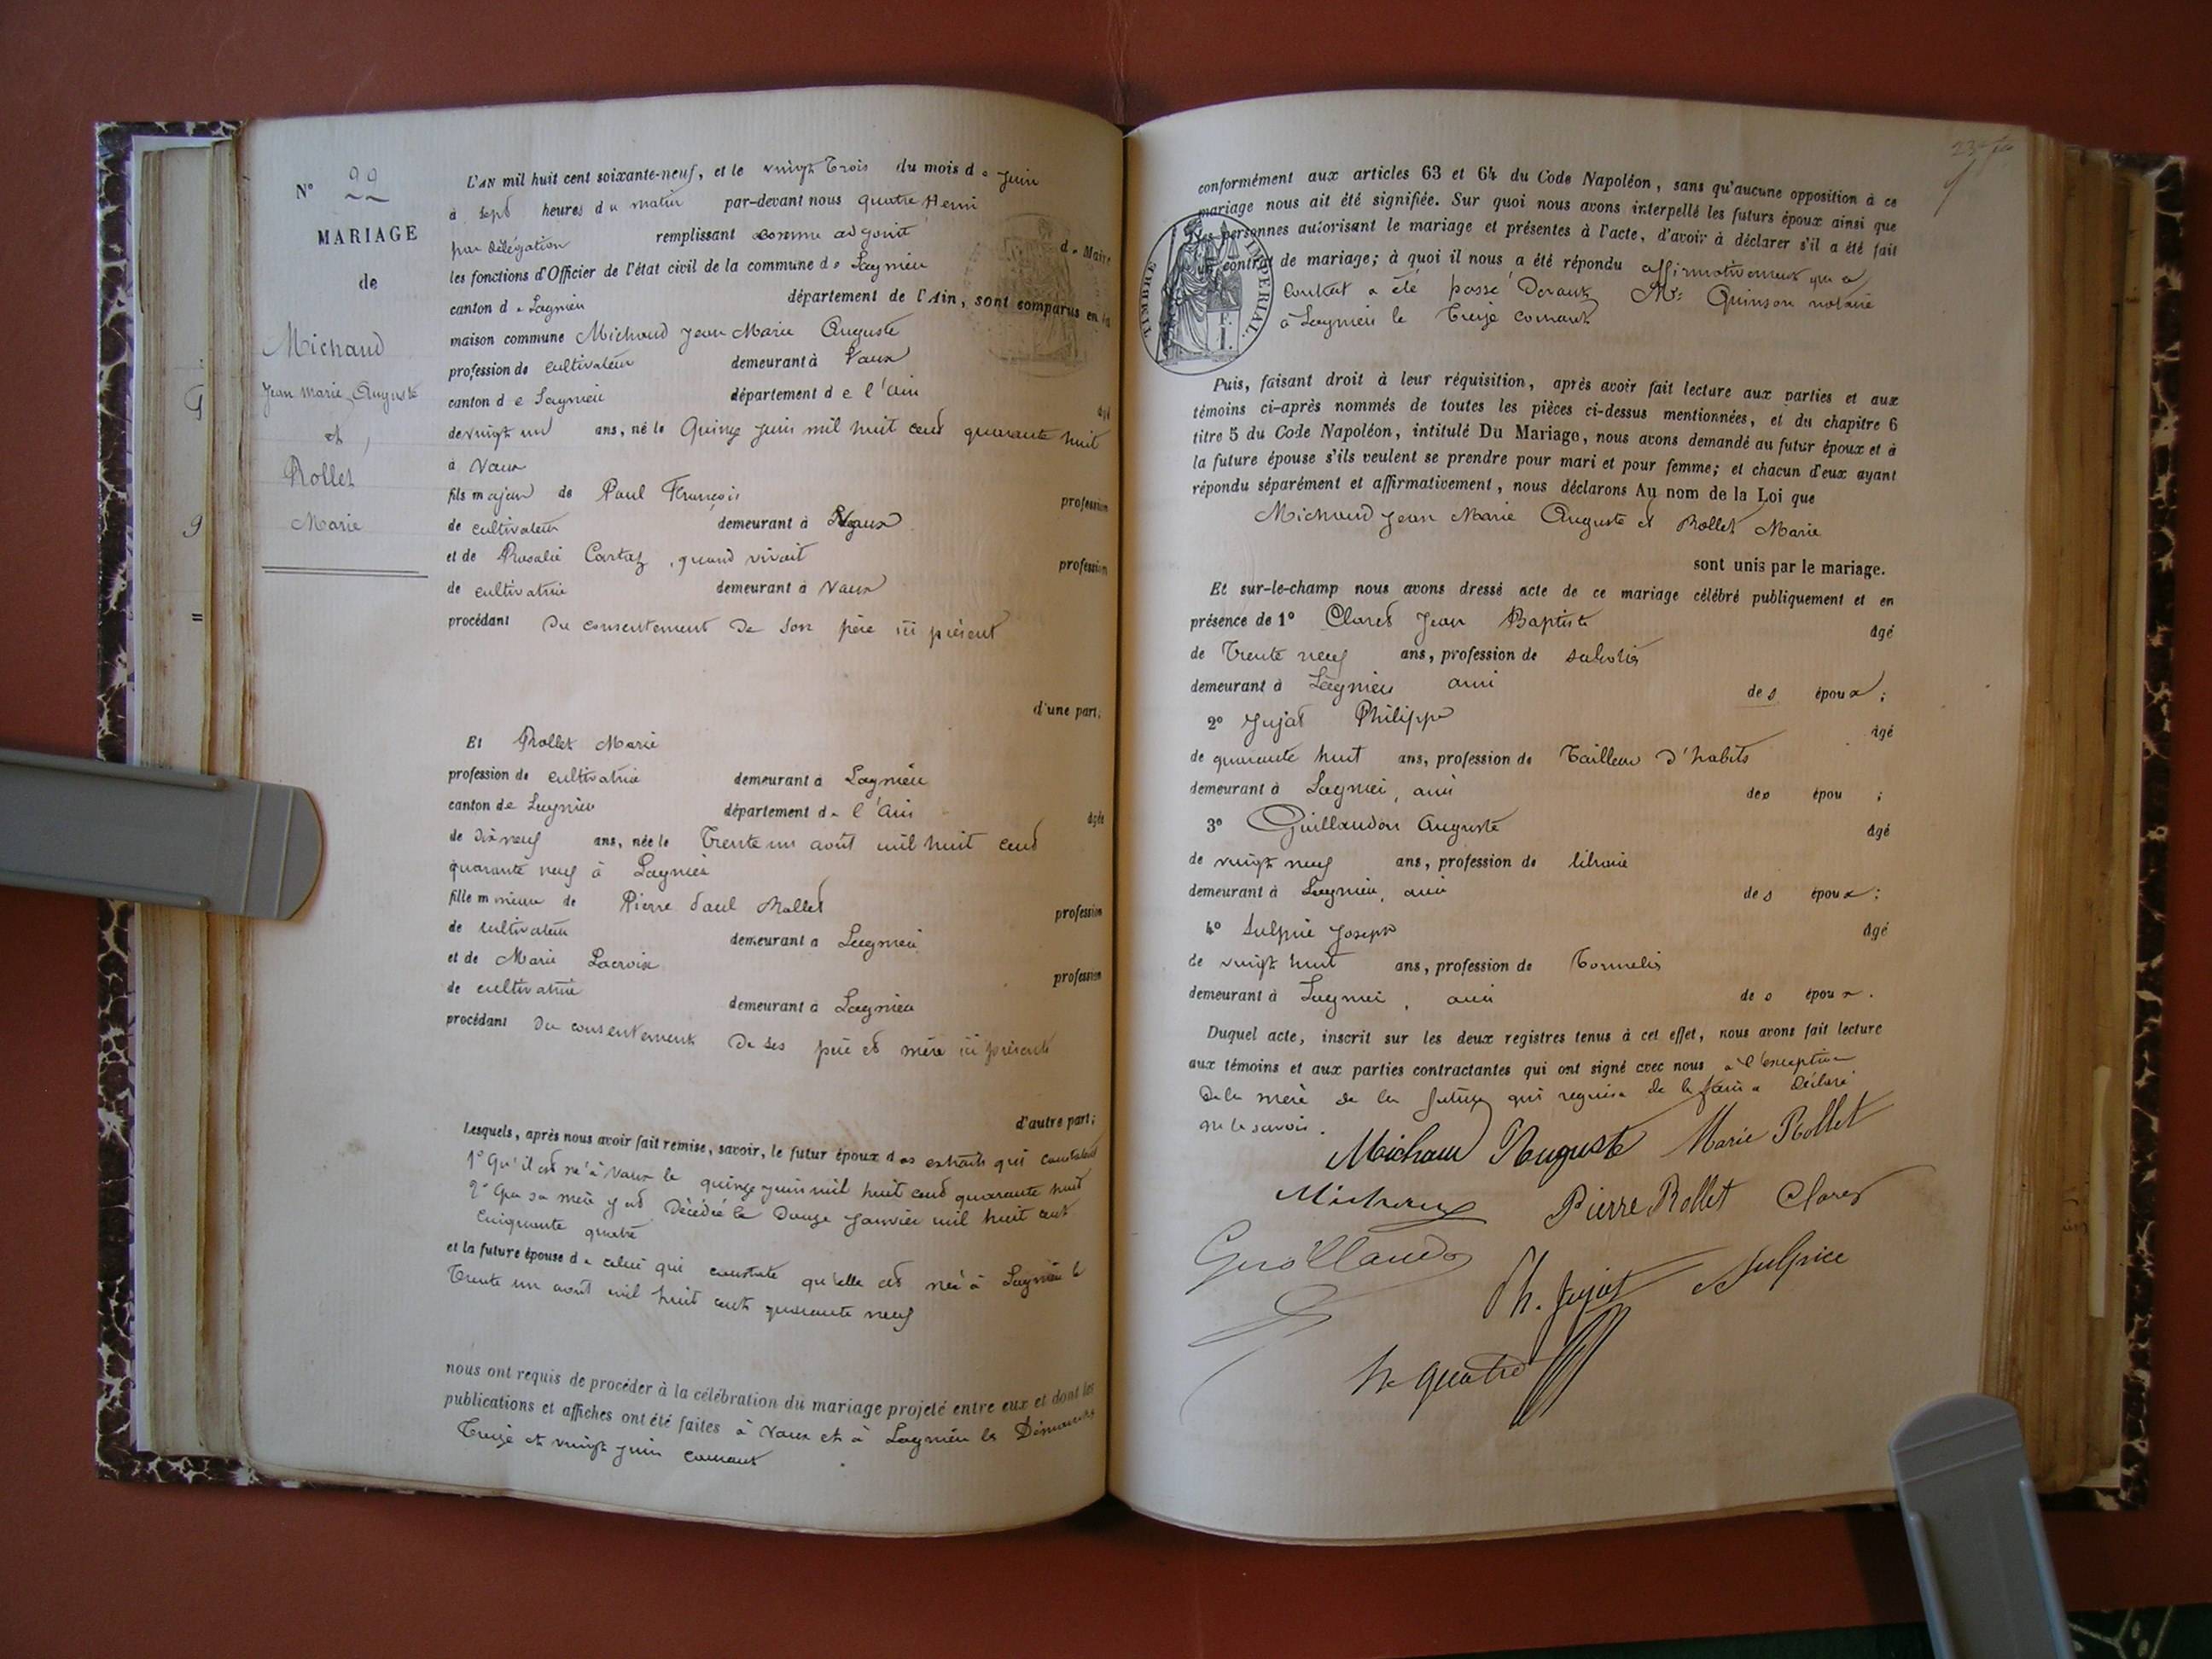 N° 22
MARIAGE
de
Michaud
Jean Marie Auguste
et
Rollet
Marie
L'AN mil huit cent soixante-neuf, et le vingt trois du mois de Juin
à sept heures du matin par-devant nous quatre Henri
par délégation remplissant comme adjoint de Maire
les fonctions d'Officier de l'état civil de la commune de Lagnieu
canton de Lagnieu département de l'Ain, sont comparus en la
maison commune Michaud Jean Marie Auguste
profession de cultivateur demeurant à Vaux
canton de Lagnieu département de l'Ain âgé
de vingt un ans, né le Quinze juin mil huit cent quarante huit
à Vaux
fils majeur de Paul François profession
de cultivateur demeurant à Vaux
et de Rosalie Cartaz, quand vivait profession
de cultivatrice demeurant à Vaux
procédant du consentement de son père ici présent
d'une part;
Et Rollet Marie
profession de cultivatrice demeurant à Lagnieu
canton de Lagnieu département de l'Ain âgée
de dix neuf ans, née le Trente un août mil huit cent
quarante neuf à Lagnieu
fille mineure de Pierre Paul Rollet profession
de cultivateur demeurant à Lagnieu
et de Marie Lacroix profession
de cultivatrice demeurant à Lagnieu
procédant du consentement de ses père et mère ici présents
d'autre part;
Lesquels, après nous avoir fait remise, savoir, le futur époux des extraits qui constatent
1° Qu'il est né à Vaux le quinze juin mil huit cent quarante huit
2° Que sa mère y est décédée le Douze Janvier mil huit cent
cinquante quatre
et la future épouse de celui qui constate qu'elle est née à Lagnieu le
Trente un août mil huit cent quarante neuf
nous ont requis de procéder à la célébration du mariage projeté entre eux et dont les
publications et affiches ont été faites à Vaux et à Lagnieu les Dimanches
Treize et vingt juin courant
conformément aux articles 63 et 64 du Code Napoléon, sans qu'aucune opposition à ce
mariage nous ait été signifiée. Sur quoi nous avons interpellé les futurs époux ainsi que
les personnes autorisant le mariage et présentes à l'acte, d'avoir à déclarer s'il a été fait
un contrat de mariage; à quoi il nous a été répondu affirmativement que ce
contrat a été passé Devant Me Quinson notaire
à Lagnieu le Treize courant
TIMBRE IMPÉRIAL.
F.
1.
Puis, faisant droit à leur réquisition, après avoir fait lecture aux parties et aux
témoins ci-après nommés de toutes les pièces ci-dessus mentionnées, et du chapitre 6
titre 5 du Code Napoléon, intitulé Du Mariage, nous avons demandé au futur époux et à
la future épouse s'ils veulent se prendre pour mari et pour femme; et chacun d'eux ayant
répondu séparément et affirmativement, nous déclarons Au nom de la Loi que
Michaud Jean Marie Auguste et Rollet Marie
sont unis par le mariage.
Et sur-le-champ nous avons dressé acte de ce mariage célébré publiquement et en
présence de 1° Claret Jean Baptiste âgé
de Trente neuf ans, profession de sabotier
demeurant à Lagnieu ami des époux;
2° Jujat Philippe âgé
de quarante huit ans, profession de Tailleur d'habits
demeurant à Lagnieu, ami des épou ;
3° Guillaudon Auguste âgé
de vingt neuf ans, profession de libraire
demeurant à Lagnieu, ami des époux;
4° Sulpice Joseph âgé
de vingt huit ans, profession de Tonnelier
demeurant à Lagnieu, ami des époux.
Duquel acte, inscrit sur les deux registres tenus à cet effet, nous avons fait lecture
aux témoins et aux parties contractantes qui ont signé avec nous à l'exception
de la mère de la future qui requise de le faire a déclaré
ne le savoir.
Michaud Auguste Marie Rollet
Michaud Pierre Rollet Claret
Guillaudon Ph. Jujat Sulpice
h quatre